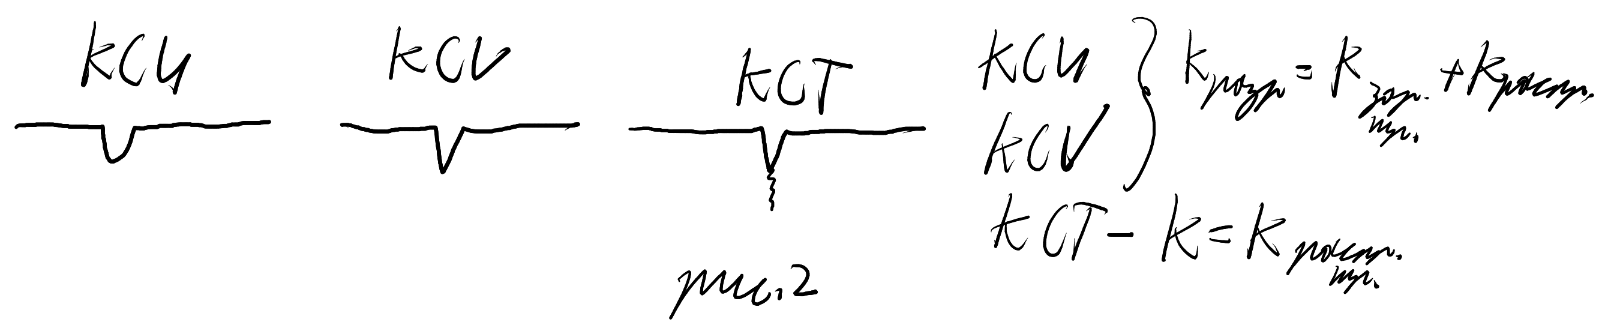 KCU KCV KCT
KCU
KCV } K разр = K зар. тр. + K распр.
KCT - K = K распр. тр.
рис. 2